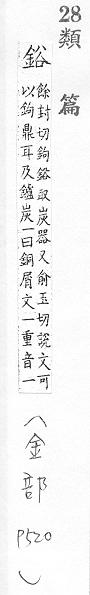 28類篇
鋊
餘封切鉤鋊取炭器又俞玉切說文可
以鉤鼎耳及鑪炭一曰銅屑文一重音一
(金部
P520)